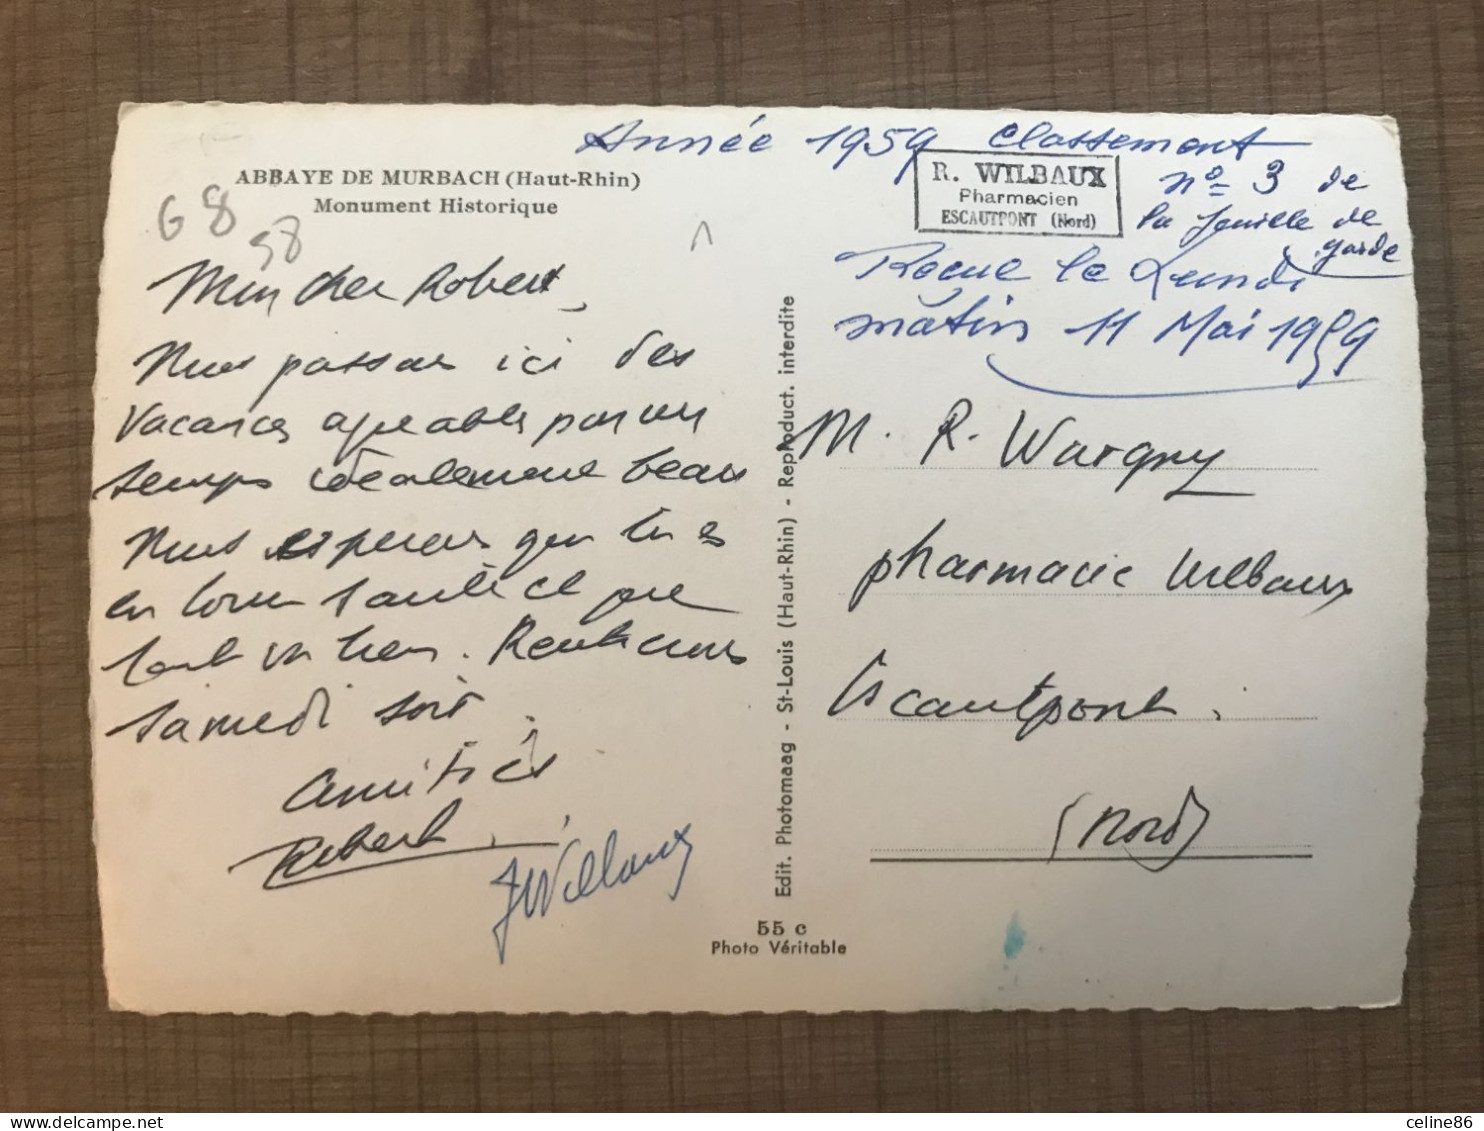 Année 1959 Classement
n° 3 de
la feuille de
garde
R. WILBAUX
Pharmacien
ESCAUTPONT (Nord)
Reçue le Lundi
matin 11 Mai 1959
ABBAYE DE MURBACH (Haut-Rhin)
Monument Historique
G 8
98
Mon cher Robert,
Nous passons ici des
vacances agréables par un
temps idéalement beau
Nous espérons que tu es
en bonne santé et que
tout va bien. Rentrerons
samedi soir.
Amitiés
Robert.
JWilbaux
Edit. Photomaag - St-Louis (Haut-Rhin) - Reproduct. interdite
M. R. Wargny
pharmacie Wilbaux
Escautpont.
(Nord)
55 c
Photo Véritable
celine86